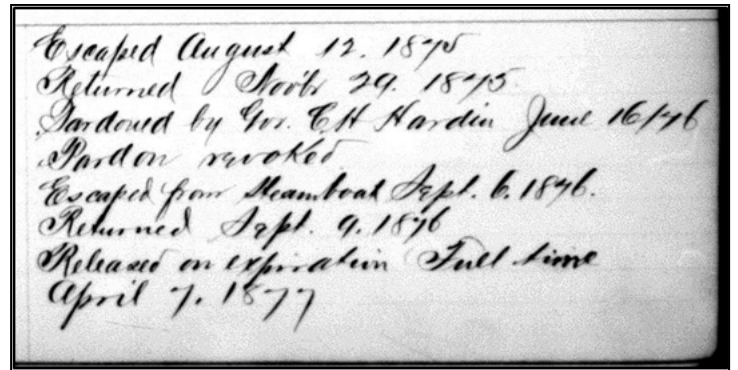 Escaped August 12. 1875
Returned Novbr 29. 1875.
Pardoned by Gov. C H Hardin June 16/76
Pardon revoked
Escaped from Steamboat Sept. 6. 1876.
Returned Sept. 9. 1876
Released on expiration Full time
April 7. 1877